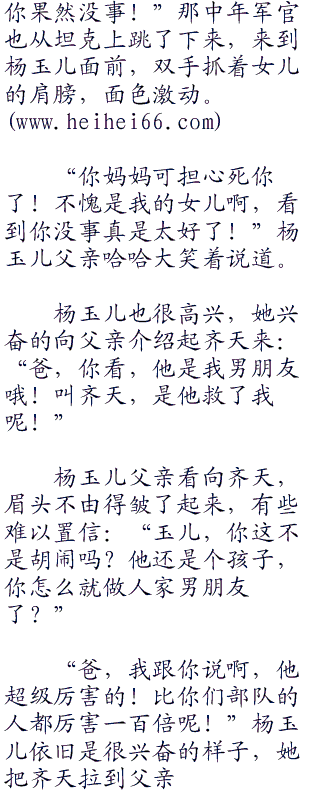 你果然没事！”那中年军官
也从坦克上跳了下来，来到
杨玉儿面前，双手抓着女儿
的肩膀，面色激动。
(www.heihei66.com)
“你妈妈可担心死你
了！不愧是我的女儿啊，看
到你没事真是太好了！”杨
玉儿父亲哈哈大笑着说道。
杨玉儿也很高兴，她兴
奋的向父亲介绍起齐天来：
“爸，你看，他是我男朋友
哦！叫齐天，是他救了我
呢！”
杨玉儿父亲看向齐天，
眉头不由得皱了起来，有些
难以置信：“玉儿，你这不
是胡闹吗？他还是个孩子，
你怎么就做人家男朋友
了？”
“爸，我跟你说啊，他
超级厉害的！比你们部队的
人都厉害一百倍呢！”杨玉
儿依旧是很兴奋的样子，她
把齐天拉到父亲